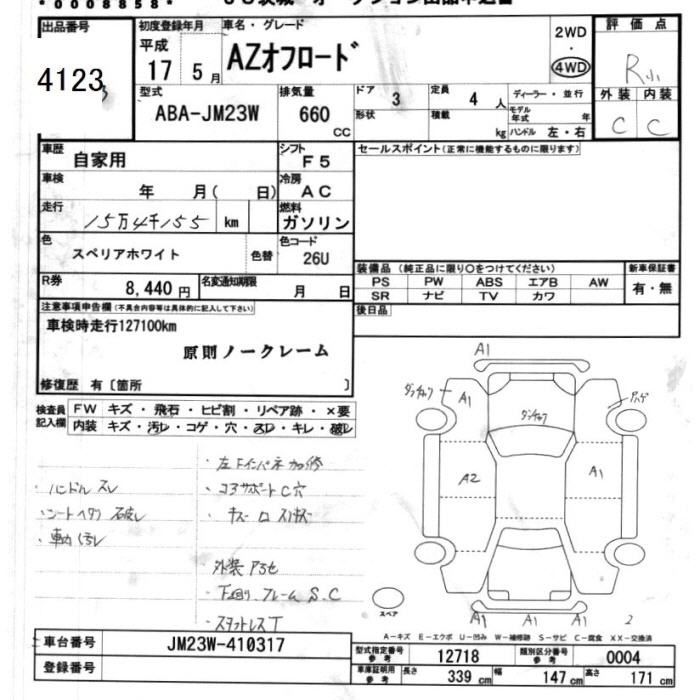 *0008858*
出品番号
4123
初度登録年月
平成
17 5月
車名・グレード
AZオフロード
2WD
・
4WD
評価点
R
外装 内装
C C
型式
ABA-JM23W
排気量
660
CC
ドア
3
定員
4 人
形状
積載
kg
ディーラー・並行
モデル年式 年
ハンドル 左・右
車歴
自家用
シフト
F5
車検
年 月( 日)
冷房
AC
走行
15万4千155 km
燃料
ガソリン
色
スペリアホワイト
色替
色コード
26U
R券
8,440円
名変通知期限
月 日
セールスポイント(正常に機能するものに限ります)
装備品 (純正品に限り○をつけてください)
PS PW ABS エアB AW
SR ナビ TV カワ
新車保証書
有・無
後日品
注意事項申告欄(不具合内容等は具体的に記入して下さい)
車検時走行127100km
原則ノークレーム
修復歴 有〔箇所 〕
検査員
記入欄
FW キズ・飛石・ヒビ割・リペア跡・×要
内装 キズ・汚レ・コゲ・穴・スレ・キレ・破レ
・ハンドル スレ
・シートヘタリ 破レ
・車内 汚レ
・コアサポートC穴
下回り.フレーム S.C
・スタットレスT
A1
A1
A2
A1
A1 A1 A1
2
スペア
A-キズ E-エクボ U-凹み W-補修跡 S-サビ C-腐食 XX-交換済
車台番号
JM23W-410317
登録番号
型式指定番号
参考
12718
類別区分番号
参考
0004
車庫証明用
参考
長さ
339 cm
幅
147 cm
高さ
171 cm